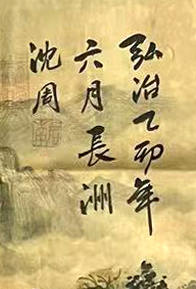 弘治乙卯年
六月長洲
沈周